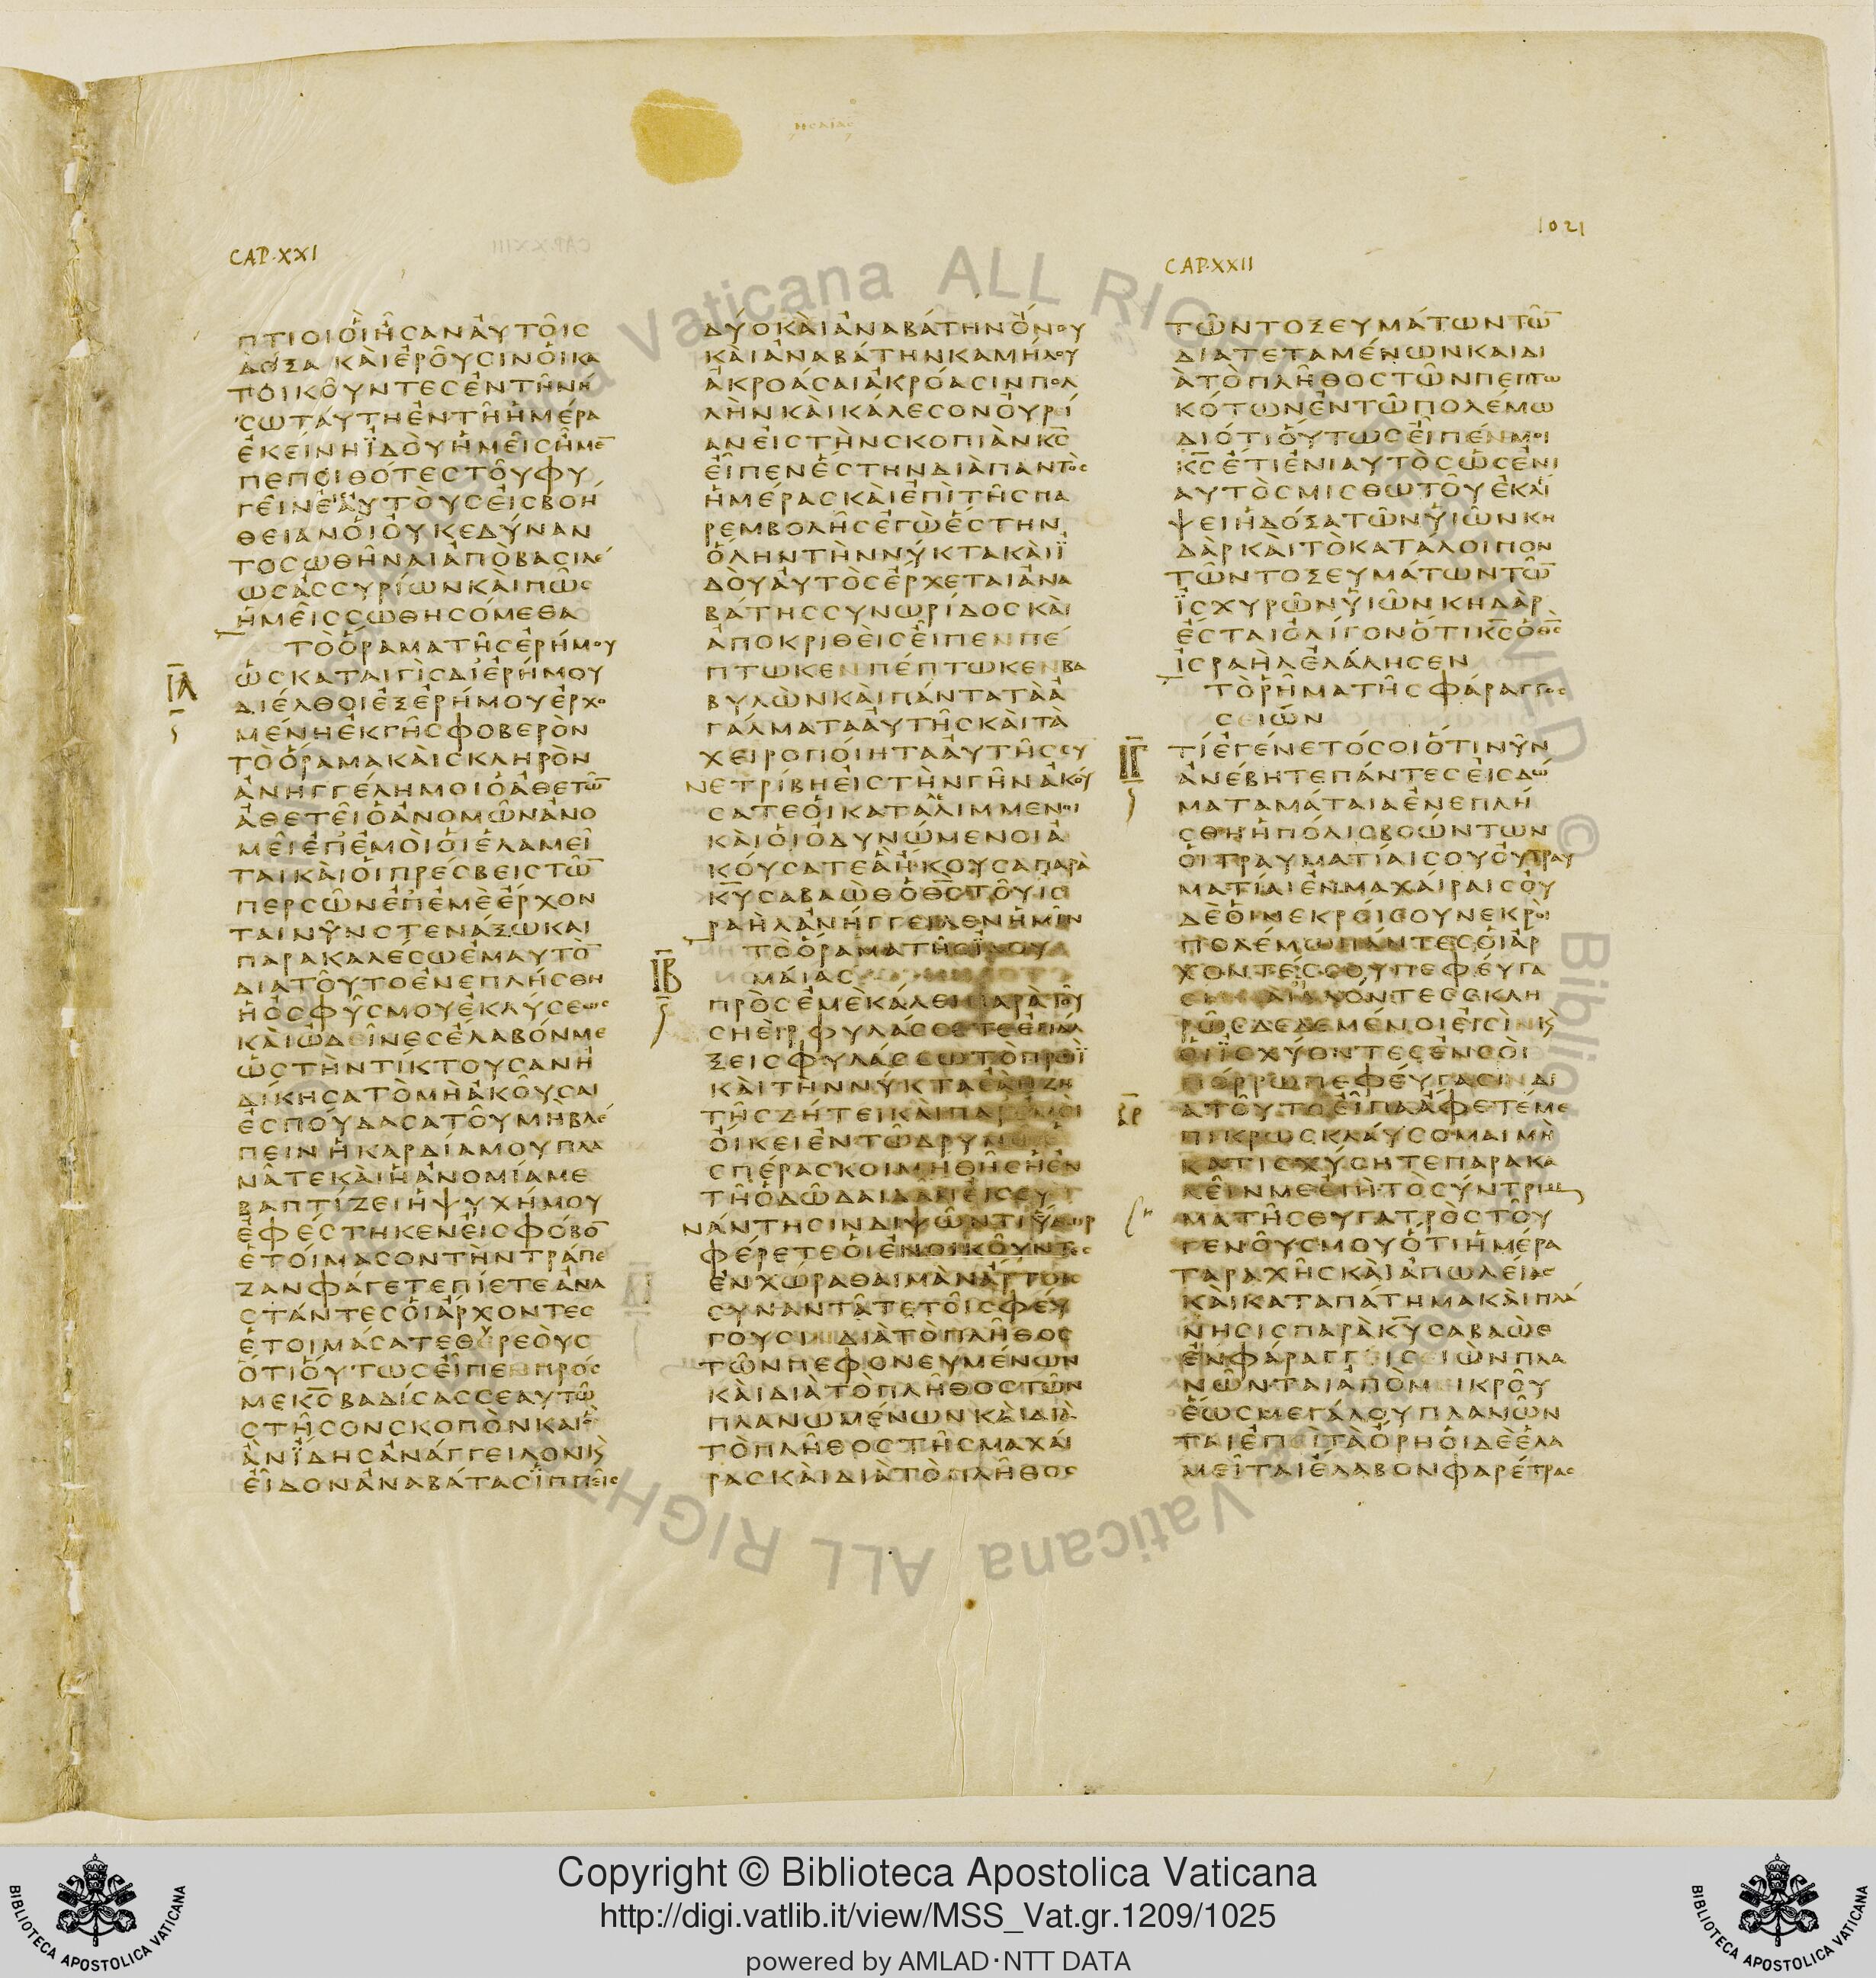 ΗΣΑΙΑΣ
1021
CAP·XXI
ΠΤΙΟΙΟΙΗϹΑΝΑΥΤΟΙϹ
ΔΟΞΑΚΑΙΕΡΟΥϹΙΝΟΙΚΑ
ΤΟΙΚΟΥΝΤΕϹΕΝΤΗΝΗ
ϹΩΤΑΥΤΗΕΝΤΗΗΜΕΡΑ
ΕΚΕΙΝΗΙΔΟΥΗΜΕΙϹΗΜΕ̅
ΠΕΠΟΙΘΟΤΕϹΤΟΥΦΥ
ΓΕΙΝΕΙϹΑΥΤΟΥϹΕΙϹΒΟΗ
ΘΕΙΑΝΟΙΟΥΚΕΔΥΝΑΝ
ΤΟϹΩΘΗΝΑΙΑΠΟΒΑϹΙΛΕ
ΩϹΑϹϹΥΡΙΩΝΚΑΙΠΩϹ
ΗΜΕΙϹϹΩΘΗϹΟΜΕΘΑ
ΤΟΟΡΑΜΑΤΗϹΕΡΗΜΟΥ
ΙΑ
ΩϹΚΑΤΑΙΓΙϹΔΙΕΡΗΜΟΥ
ΔΙΕΛΘΟΙΕΞΕΡΗΜΟΥΕΡΧΟ
ΜΕΝΗΕΚΓΗϹΦΟΒΕΡΟΝ
ΤΟΟΡΑΜΑΚΑΙϹΚΛΗΡΟΝ
ΑΝΗΓΓΕΛΗΜΟΙΟΑΘΕΤΩ̅
ΑΘΕΤΕΙΟΑΝΟΜΩΝΑΝΟ
ΜΕΙΕΠΕΜΟΙΟΙΕΛΑΜΕΙ
ΤΑΙΚΑΙΟΙΠΡΕϹΒΕΙϹΤΩ̅
ΠΕΡϹΩΝΕΠΕΜΕΕΡΧΟΝ
ΤΑΙΝΥΝϹΤΕΝΑΞΩΚΑΙ
ΠΑΡΑΚΑΛΕϹΩΕΜΑΥΤΟ̅
ΔΙΑΤΟΥΤΟΕΝΕΠΛΗϹΘΗ
ΗΟϹΦΥϹΜΟΥΕΚΛΥϹΕΩϹ
ΚΑΙΩΔΕΙΝΕϹΕΛΑΒΟΝΜΕ
ΩϹΤΗΝΤΙΚΤΟΥϹΑΝΗ
ΔΙΚΗϹΑΤΟΜΗΑΚΟΥϹΑΙ
ΕϹΠΟΥΔΑϹΑΤΟΥΜΗΒΛΕ
ΠΕΙΝΗΚΑΡΔΙΑΜΟΥΠΛΑ
ΝΑΤΕΚΑΙΗΑΝΟΜΙΑΜΕ
ΒΑΠΤΙΖΕΙΗΨΥΧΗΜΟΥ
ΕΦΕϹΤΗΚΕΝΕΙϹΦΟΒΟ̅
ΕΤΟΙΜΑϹΟΝΤΗΝΤΡΑΠΕ
ΖΑΝΦΑΓΕΤΕΠΙΕΤΕΑΝΑ
ϹΤΑΝΤΕϹΟΙΑΡΧΟΝΤΕϹ
ΕΤΟΙΜΑϹΑΤΕΘΥΡΕΟΥϹ
ΟΤΙΟΥΤΩϹΕΙΠΕΝΠΡΟϹ
ΜΕΚ̅Ϲ̅ΒΑΔΙϹΑϹϹΕΑΥΤΩ
ϹΤΗϹΟΝϹΚΟΠΟΝΚΑΙΟ
ΑΝΙΔΗϹΑΝΑΓΓΕΙΛΟΝΚϏ
ΕΙΔΟΝΑΝΑΒΑΤΑϹΙΠΠΕΙϹ
ΔΥΟΚΑΙΑΝΑΒΑΤΗΝΟΝΟΥ
ΚΑΙΑΝΑΒΑΤΗΝΚΑΜΗΛΟΥ
ΑΚΡΟΑϹΑΙΑΚΡΟΑϹΙΝΠΟΛ
ΛΗΝΚΑΙΚΑΛΕϹΟΝΟΥΡΙ
ΑΝΕΙϹΤΗΝϹΚΟΠΙΑΝΚ̅Ϲ̅
ΕΙΠΕΝΕϹΤΗΝΔΙΑΠΑΝΤΟϹ
ΗΜΕΡΑϹΚΑΙΕΠΙΤΗϹΠΑ
ΡΕΜΒΟΛΗϹΕΓΩΕϹΤΗΝ
ΟΛΗΝΤΗΝΝΥΚΤΑΚΑΙΙ
ΔΟΥΑΥΤΟϹΕΡΧΕΤΑΙΑΝΑ
ΒΑΤΗϹϹΥΝΩΡΙΔΟϹΚΑΙ
ΑΠΟΚΡΙΘΕΙϹΕΙΠΕΝΠΕ
ΠΤΩΚΕΝΠΕΠΤΩΚΕΝΒΑ
ΒΥΛΩΝΚΑΙΠΑΝΤΑΤΑΑ
ΓΑΛΜΑΤΑΑΥΤΗϹΚΑΙΤΑ
ΧΕΙΡΟΠΟΙΗΤΑΑΥΤΗϹϹΥ
ΝΕΤΡΙΒΗΕΙϹΤΗΝΓΗΝΑΚΟΥ
ϹΑΤΕΟΙΚΑΤΑΛΙΜΜΕΝΟΙ
ΚΑΙΟΙΟΔΥΝΩΜΕΝΟΙΑ
ΚΟΥϹΑΤΕΑΗΚΟΥϹΑΠΑΡΑ
Κ̅Υ̅ϹΑΒΑΩΘΟΘ̅Ϲ̅ΤΟΥΙϹ
ΡΑΗΛΑΝΗΓΓΕΙΛΕΝΗΜΙΝ
ΤΟΟΡΑΜΑΤΗϹΙΔΟΥ
ΜΑΙΑϹ
ΙΒ
ΠΡΟϹΕΜΕΚΑΛΕΙΠΑΡΑΤΟΥ
ϹΗΕΙΡΦΥΛΑϹϹΕΤΕΕΠΑΛ
ΞΕΙϹΦΥΛΑϹϹΩΤΟΠΡΩΙ
ΚΑΙΤΗΝΝΥΚΤΑΕΑΝΖΗ
ΤΗϹΖΗΤΕΙΚΑΙΠΑΡΕΜΟΙ
ΟΙΚΕΙΕΝΤΩΔΡΥΜΩΕ
ϹΠΕΡΑϹΚΟΙΜΗΘΗϹΗΕΝ
ΤΗΟΔΩΔΑΙΔΑΝΕΙϹϹΥ
ΝΑΝΤΗϹΙΝΔΙΨΩΝΤΙΥΔΩΡ
ΦΕΡΕΤΕΟΙΕΝΟΙΚΟΥΝΤΕϹ
ΕΝΧΩΡΑΘΑΙΜΑΝΑΡΤΟΙϹ
ϹΥΝΑΝΤΑΤΕΤΟΙϹΦΕΥ
ΓΟΥϹΙΝΔΙΑΤΟΠΛΗΘΟϹ
ΤΩΝΠΕΦΟΝΕΥΜΕΝΩΝ
ΚΑΙΔΙΑΤΟΠΛΗΘΟϹΤΩΝ
ΠΛΑΝΩΜΕΝΩΝΚΑΙΔΙΑ
ΤΟΠΛΗΘΟϹΤΗϹΜΑΧΑΙ
ΡΑϹΚΑΙΔΙΑΤΟΠΛΗΘΟϹ
CAP·XXII
ΤΩΝΤΟΞΕΥΜΑΤΩΝΤΩ̅
ΔΙΑΤΕΤΑΜΕΝΩΝΚΑΙΔΙ
ΑΤΟΠΛΗΘΟϹΤΩΝΠΕΠΤΩ
ΚΟΤΩΝΕΝΤΩΠΟΛΕΜΩ
ΔΙΟΤΙΟΥΤΩϹΕΙΠΕΝΜΟΙ
Κ̅Ϲ̅ΕΤΙΕΝΙΑΥΤΟϹΩϹΕΝΙ
ΑΥΤΟϹΜΙϹΘΩΤΟΥΕΚΛΙ
ΨΕΙΗΔΟΞΑΤΩΝΥΙΩΝΚΗ
ΔΑΡΚΑΙΤΟΚΑΤΑΛΟΙΠΟΝ
ΤΩΝΤΟΞΕΥΜΑΤΩΝΤΩ̅
ΙϹΧΥΡΩΝΥΙΩΝΚΗΔΑΡ
ΕϹΤΑΙΟΛΙΓΟΝΟΤΙΚ̅Ϲ̅ΟΘ̅Ϲ̅
ΙϹΡΑΗΛΕΛΑΛΗϹΕΝ
ΤΟΡΗΜΑΤΗϹΦΑΡΑΓΓΟϹ
ϹΕΙΩΝ
ΙΓ
ΤΙΕΓΕΝΕΤΟϹΟΙΟΤΙΝΥΝ
ΑΝΕΒΗΤΕΠΑΝΤΕϹΕΙϹΔΩ
ΜΑΤΑΜΑΤΑΙΑΕΝΕΠΛΗ
ϹΘΗΗΠΟΛΙϹΒΟΩΝΤΩΝ
ΟΙΤΡΑΥΜΑΤΙΑΙϹΟΥΟΥΤΡΑΥ
ΜΑΤΙΑΙΕΝΜΑΧΑΙΡΑΙϹΟΥ
ΔΕΟΙΝΕΚΡΟΙϹΟΥΝΕΚΡΟΙ
ΠΟΛΕΜΩΠΑΝΤΕϹΟΙΑΡ
ΧΟΝΤΕϹϹΟΥΠΕΦΕΥΓΑ
ϹΙΝΚΑΙΑΛΟΝΤΕϹϹΚΛΗ
ΡΩϹΔΕΔΕΜΕΝΟΙΕΙϹΙΝΚϏ
ΟΙΙϹΧΥΟΝΤΕϹΕΝϹΟΙ
ΠΟΡΡΩΠΕΦΕΥΓΑϹΙΝΔΙ
ΑΤΟΥΤΟΕΙΠΑΑΦΕΤΕΜΕ
ΠΙΚΡΩϹΚΛΑΥϹΟΜΑΙΜΗ
ΚΑΤΙϹΧΥϹΗΤΕΠΑΡΑΚΑ
ΛΕΙΝΜΕΕΠΙΤΟϹΥΝΤΡΙΜ
ΜΑΤΗϹΘΥΓΑΤΡΟϹΤΟΥ
ΓΕΝΟΥϹΜΟΥΟΤΙΗΜΕΡΑ
ΤΑΡΑΧΗϹΚΑΙΑΠΩΛΕΙΑϹ
ΚΑΙΚΑΤΑΠΑΤΗΜΑΚΑΙΠΛΑ
ΝΗϹΙϹΠΑΡΑΚ̅Υ̅ϹΑΒΑΩΘ
ΕΝΦΑΡΑΓΓΙϹΕΙΩΝΠΛΑ
ΝΩΝΤΑΙΑΠΟΜΕΙΚΡΟΥ
ΕΩϹΜΕΓΑΛΟΥΠΛΑΝΩΝ
ΤΑΙΕΠΙΤΑΟΡΗΟΙΔΕΕΛΑ
ΜΕΙΤΑΙΕΛΑΒΟΝΦΑΡΕΤΡΑϹ
Vaticana ALL RIGHTS RESERVED © Biblioteca Apostolica Vaticana ALL RIGHTS
BIBLIOTECA APOSTOLICA VATICANA
Copyright © Biblioteca Apostolica Vaticana
http://digi.vatlib.it/view/MSS_Vat.gr.1209/1025
powered by AMLAD·NTT DATA
BIBLIOTECA APOSTOLICA VATICANA